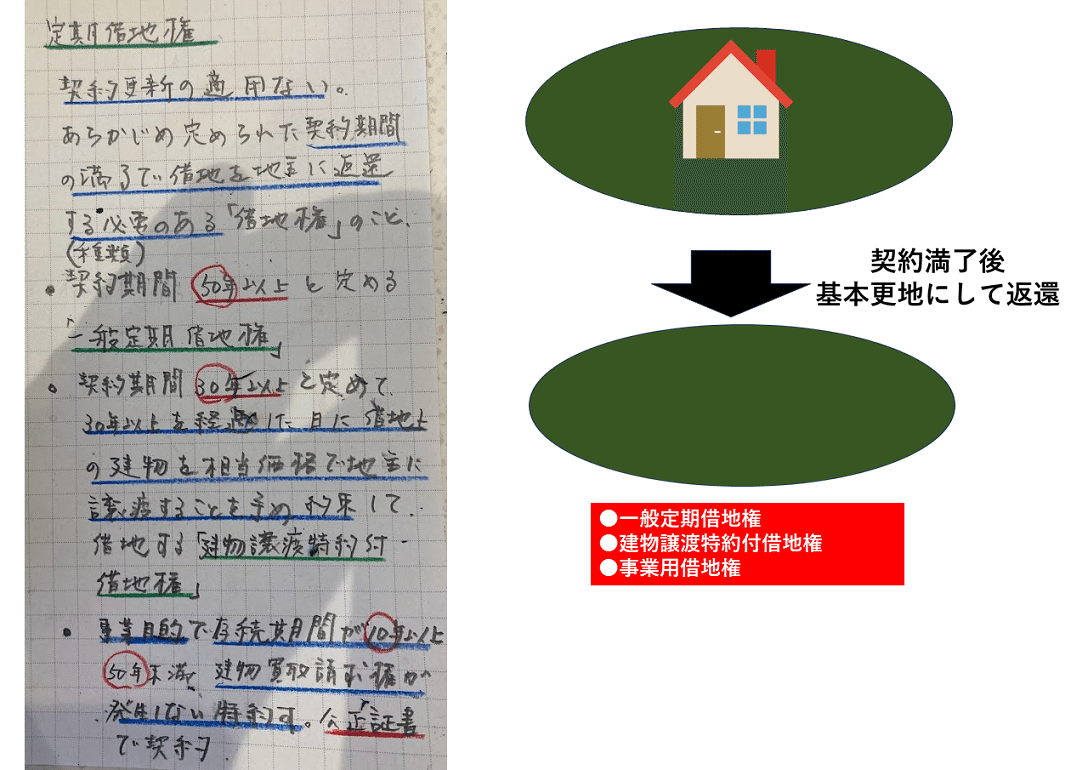 定期借地権
契約更新の適用ない。
あらかじめ定められた契約期間
の満了で借地を地主に返還
する必要のある「借地権」のこと、
(種類)
● 契約期間 50年以上と定める
「一般定期借地権」
● 契約期間 30年以上と定めて
30年以上を経過した日に借地上
の建物を相当価格で地主に
譲渡することを予め約束して
借地する「建物譲渡特約付
借地権」
● 事業目的で存続期間が10年以上
50年未満、建物買取請求権が
発生しない特約す。公正証書
で契約す
契約満了後
基本更地にして返還
●一般定期借地権
●建物譲渡特約付借地権
●事業用借地権